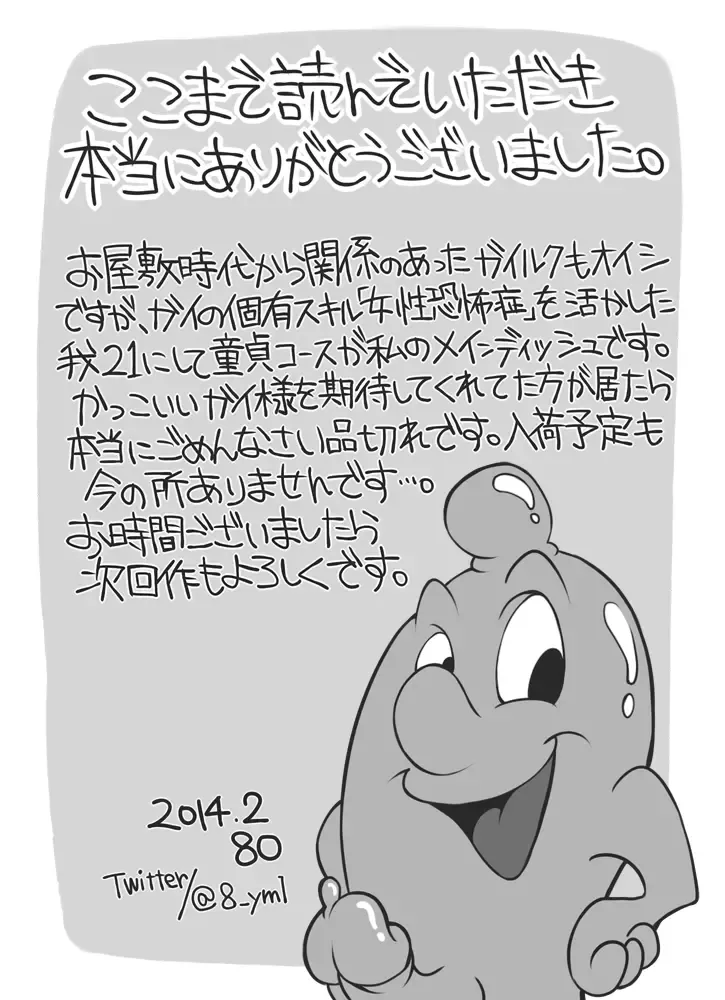 ここまで読んでいただき
本当にありがとうございました。
お屋敷時代から関係のあったガイルクもオイシ
ですが、ガイの個有スキル「女性恐怖症」を活かした
我21にして童貞コースが私のメインディッシュです。
かっこいいガイ様を期待してくれてた方が居たら
本当にごめんなさい品切れです。入荷予定も
今の所ありませんです…。
お時間ございましたら
次回作もよろしくです。
2014.2
80
Twitter/@8_yml